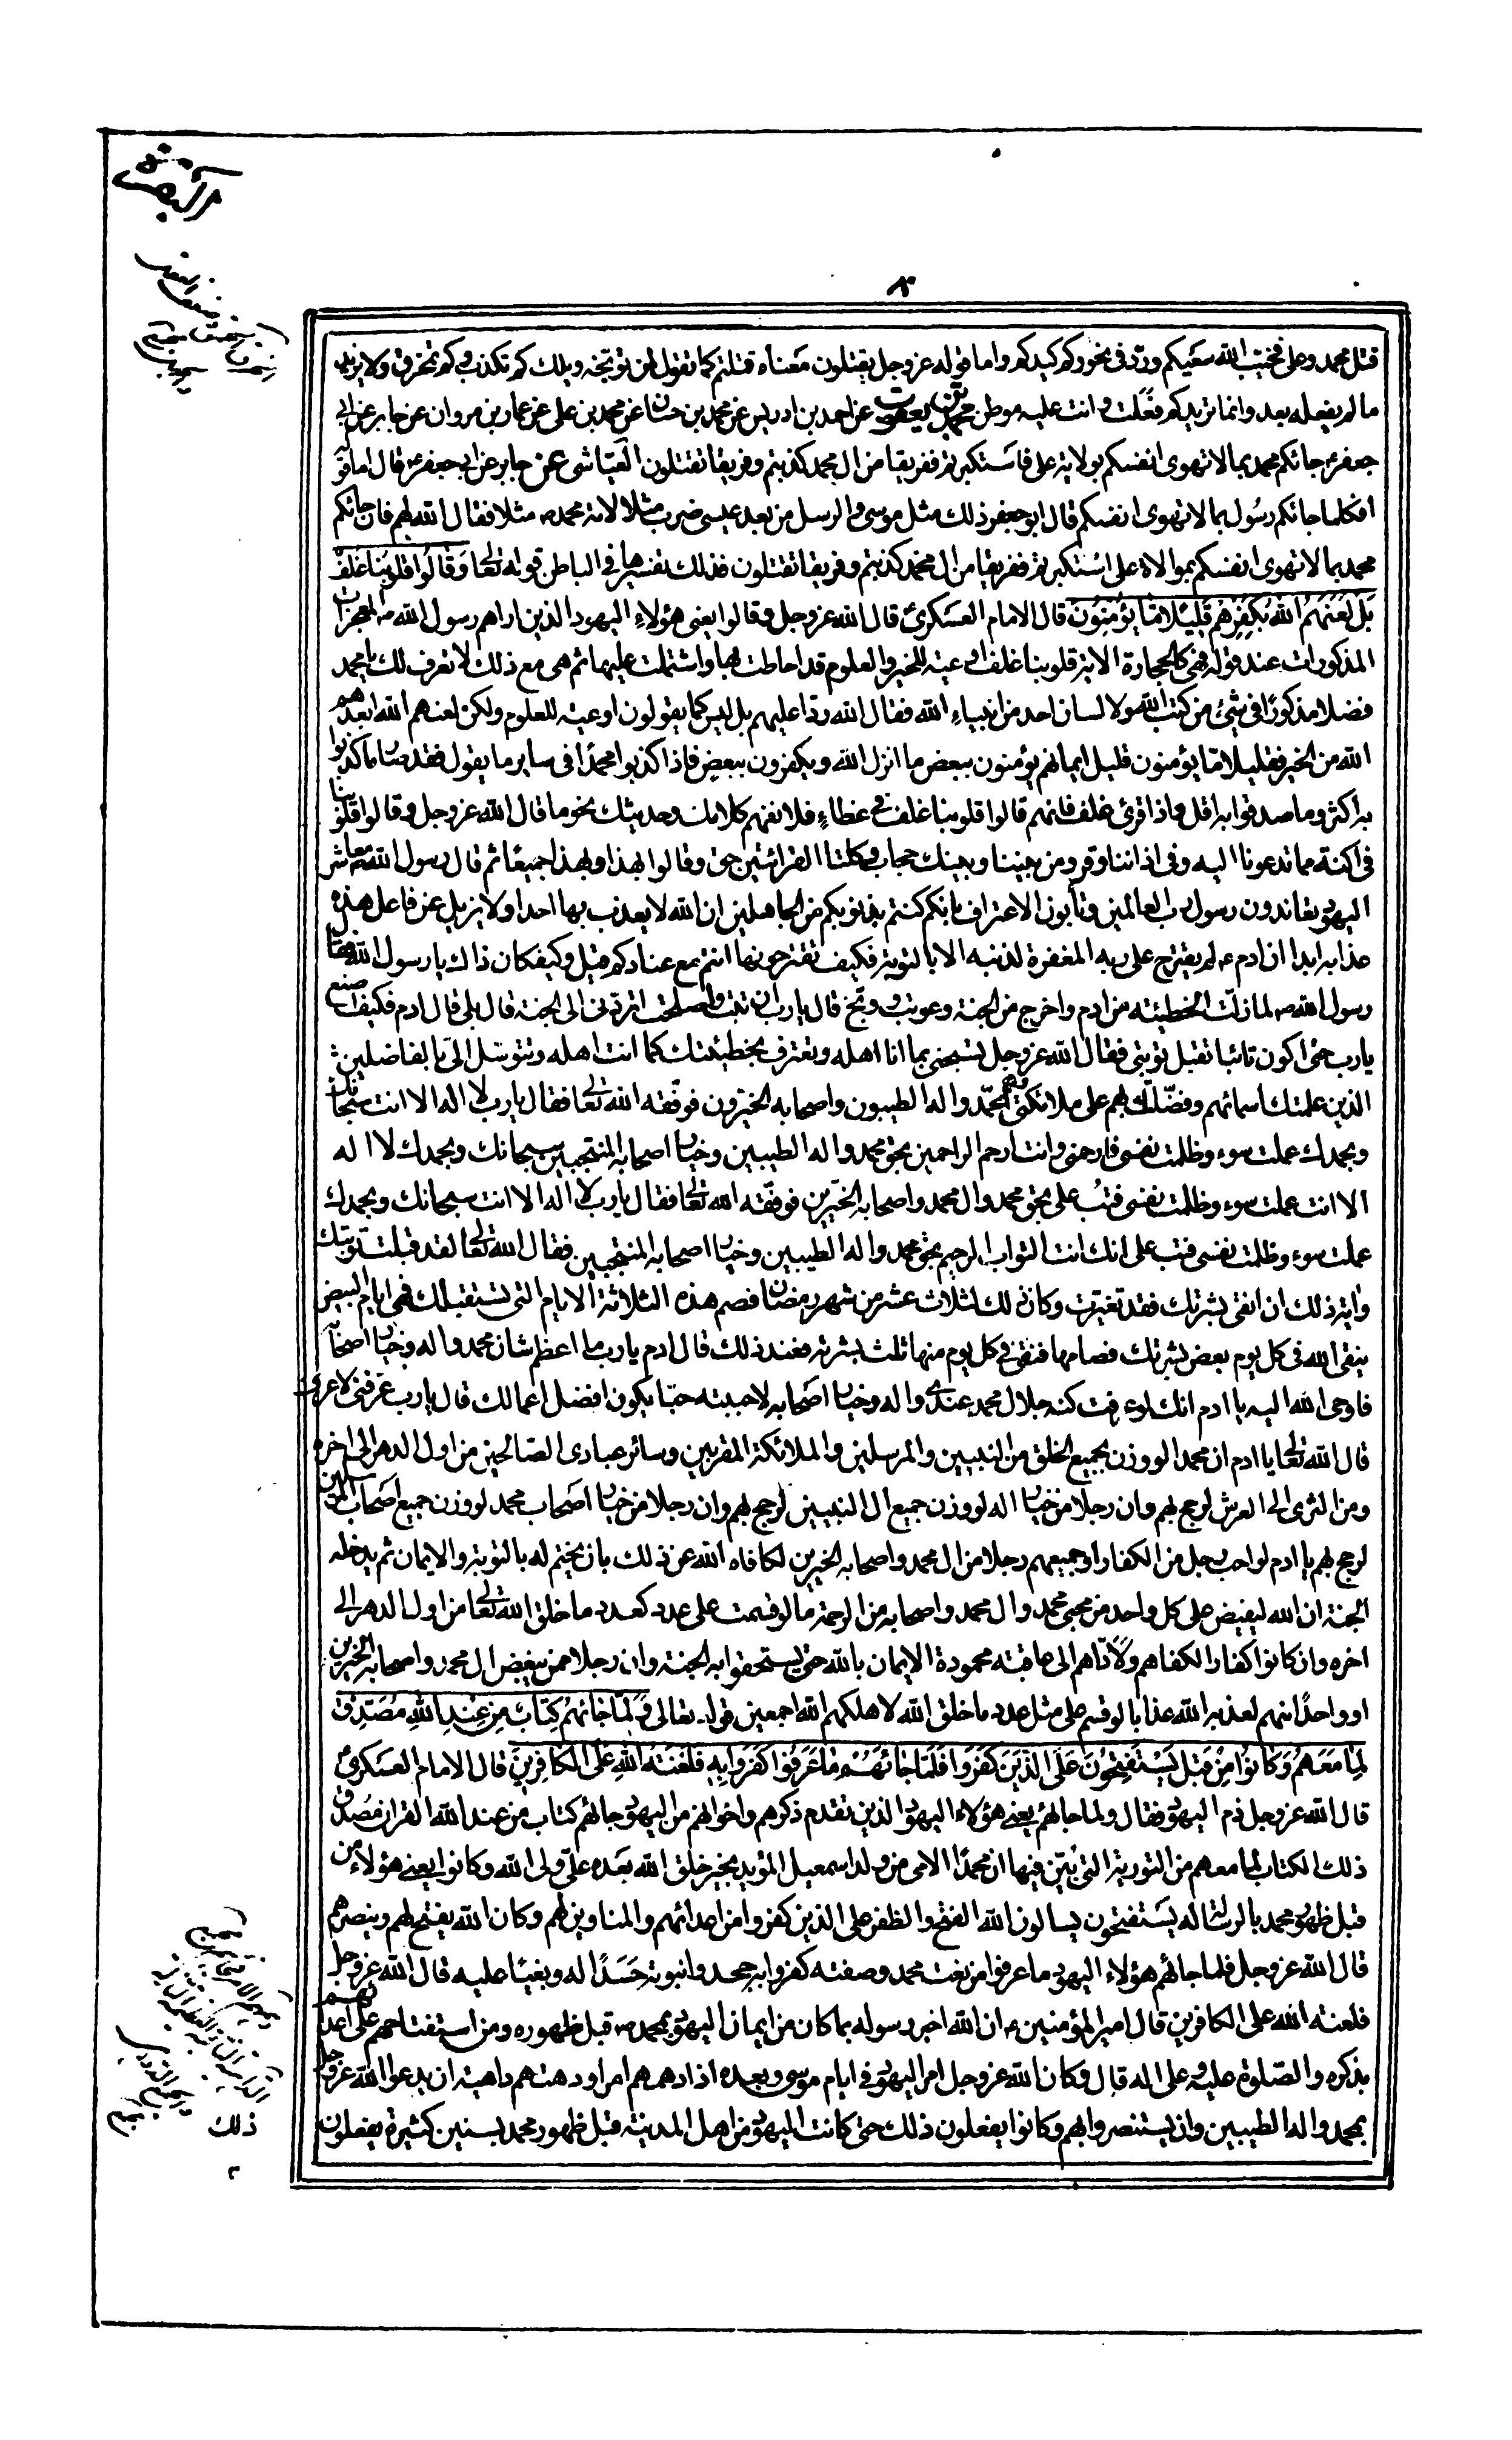 قتل محمد وعلى فخيب الله سعيكم ورد فى نحوركم كيدكم واما قوله عز وجل يقتلون معناه قتلتم كما تقول لمن توبخه ويلك كم تكذب وكم تمخرق ولا تريد
ما لم يفعله بعد وانما تريد كم فعلت وانت عليه موطن محمد بن يعقوب عن احمد بن ادريس عن محمد بن حسان عن محمد بن على عن عمار بن مروان عن جابر عن ابى
جعفر جائكم محمد بما لا تهوى انفسكم بولاية على فاستكبرتم ففريقا من ال محمد كذبتم وفريقا تقتلون العياشى عن جابر عن ابى جعفر قال اما قوله
افكلما جائكم رسول بما لا تهوى انفسكم قال ابو جعفر ذلك مثل موسى والرسل من بعده عيسى ضرب مثلا لامة محمد ص مثلا فقال الله لهم فان جائكم
محمد بما لا تهوى انفسكم بموالاة على استكبرتم ففريقا من ال محمد كذبتم وفريقا تقتلون فذلك تفسيرها فى الباطن قوله تعالى وَقَالُوا قُلُوبُنَا غُلْفٌ
بَلْ لَعَنَهُمُ اللهُ بِكُفْرِهِمْ فَقَلِيلًا مَا يُؤْمِنُونَ قال الامام العسكرى قال الله عز وجل وقالوا يعنى هؤلاء اليهود الذين اراهم رسول الله ص المعجزات
المذكورات عند قوله فهى كالحجارة الاية قلوبنا غلف اوعية للخير والعلوم قد احاطت بها واشتملت عليها ثم هى مع ذلك لا تعرف لك يا محمد
فضلا مذكورا فى شئ من كتب الله ولا لسان احد من انبياء الله فقال الله ردا عليهم بل ليس كما يقولون اوعية للعلوم ولكن لعنهم الله ابعدهم
الله من الخير فقليلا ما يؤمنون قليل ايمانهم يؤمنون ببعض ما انزل الله ويكفرون ببعض فاذا كذبوا محمدا فى ساير ما يقول فقد صار ما كذبوا
به اكثر وما صدقوا به اقل واذا قرئ غلف فانهم قالوا قلوبنا غلف فى غطاء فلا نفهم كلامك وحديثك نحو ما قال الله عز وجل وقالوا قلوبنا
فى اكنة مما تدعونا اليه وفى اذاننا وقر ومن بيننا وبينك حجاب وكلتا القرائتين حق وقالوا بهذا وبهذا جميعا ثم قال رسول الله ص معاشر
اليهود تعاندون رسول رب العالمين وتأبون الاعتراف بانكم كنتم بذنوبكم من الجاهلين ان الله لا يعذب بها احدا ولا يزيل عن فاعل هذه
عذابه ابدا ان ادم ع لم يقترح على ربه المغفرة لذنبه الا بالتوبة فكيف تقترحونها انتم مع عنادكم قيل وكيف كان ذاك يا رسول الله فقال
رسول الله ص لما زلت الخطيئة من ادم واخرج من الجنة وعوتب ووبخ قال يا رب ان تبت واصلحت اتردنى الى الجنة قال بلى قال ادم فكيف اصنع
يا رب حتى اكون تائبا تقبل توبتى فقال الله عز وجل تسبحنى بما انا اهله وتعترف بخطيئتك كما انت اهله وتتوسل الى بالفاضلين
الذين علمتك اسمائهم وفضلتك بهم على ملائكتى وهم محمد واله الطيبون واصحابه الخيرون فوفقه الله تعالى فقال يا رب لا اله الا انت سبحانك
وبحمدك عملت سوء وظلمت نفسى فارحمنى وانت ارحم الراحمين بحق محمد واله الطيبين وخيار اصحابه المنتجبين سبحانك وبحمدك لا اله
الا انت عملت سوء وظلمت نفسى فتب على بحق محمد وال محمد واصحابه الخيرين فوفقه الله تعالى فقال يا رب لا اله الا انت سبحانك وبحمدك
عملت سوء وظلمت نفسى فتب على انك انت التواب الرحيم بحق محمد واله الطيبين وخيار اصحابه المنتجبين فقال الله تعالى لقد قبلت توبتك
واية ذلك ان انقى بشرتك فقد تغيرت وكان ذلك لثلاث عشر من شهر رمضان فصم هذه الثلاثة الايام التى تستقبلك فهى ايام البيض
ينقى الله فى كل يوم بعض بشرتك فصامها فنقى فى كل يوم منها ثلث بشرته فعند ذلك قال ادم يا رب ما اعظم شان محمد واله وخيار اصحابه
فاوحى الله اليه يا ادم انك لو عرفت كنه جلال محمد عندى واله وخيار اصحابه لاحببته حبا يكون افضل اعمالك قال يا رب عرفنى لاعرف
قال الله تعالى يا ادم ان محمدا لو وزن بجميع الخلق من النبيين والمرسلين والملائكة المقربين وسائر عبادى الصالحين من اول الدهر الى اخره
ومن الثرى الى العرش لرجح بهم وان رجلا من خيار اله لو وزن جميع ال النبيين لرجح بهم وان رجلا من خيار اصحاب محمد لو وزن جميع اصحاب المرسلين
لرجح بهم يا ادم لو احب رجل من الكفار او جميعهم رجلا من ال محمد واصحابه الخيرين لكافاه الله عن ذلك بان يختم له بالتوبة والايمان ثم يدخله
الجنة ان الله ليفيض على كل واحد من محبى محمد وال محمد واصحابه من الرحمة ما لو قسمت على عدد كعدد ما خلق الله تعالى من اول الدهر الى
اخره وان كانوا كفارا لكفاهم ولاداهم الى عاقبة محمودة الايمان بالله حتى يستحقوا به الجنة وان رجلا ممن يبغض ال محمد واصحابه الخيرين
او واحدا منهم لعذبه الله عذابا لو قسم على مثل عدد ما خلق الله لاهلكهم الله اجمعين قوله تعالى وَلَمَّا جَائَهُمْ كِتَابٌ مِنْ عِنْدِ اللهِ مُصَدِّقٌ
لِمَا مَعَهُمْ وَكَانُوا مِنْ قَبْلُ يَسْتَفْتِحُونَ عَلَى الَّذِينَ كَفَرُوا فَلَمَّا جَائَهُمْ مَا عَرَفُوا كَفَرُوا بِهِ فَلَعْنَةُ اللهِ عَلَى الْكَافِرِينَ قال الامام العسكرى
قال الله عز وجل ذم اليهود فقال ولما جائهم يعنى هؤلاء اليهود الذين تقدم ذكرهم واخوانهم من اليهود جائهم كتاب من عند الله القران مصدق
ذلك الكتاب لما معهم من التورية التى بين فيها ان محمدا الامى من ولد اسمعيل المؤيد بخير خلق الله بعده على ولى الله وكانوا يعنى هؤلاء من
قبل ظهور محمد بالرسالة يستفتحون يسالون الله الفتح والظفر على الذين كفروا من اعدائهم والمناوين لهم وكان الله يفتح لهم وينصرهم
قال الله عز وجل فلما جائهم هؤلاء اليهود ما عرفوا من نعت محمد وصفته كفروا به جحدوا نبوته حسدا له وبغيا عليه قال الله عز وجل
فلعنة الله على الكافرين قال امير المؤمنين ع ان الله اخبر رسوله بما كان من ايمان اليهود بمحمد ص قبل ظهوره ومن استفتاحهم على اعدائهم
بذكره والصلوة عليه وعلى اله قال وكان الله عز وجل امر اليهود فى ايام موسى وبعده اذا دهمهم امر او دهتهم داهية ان يدعوا الله عز وجل
بمحمد واله الطيبين وان يستنصروا بهم وكانوا يفعلون ذلك حتى كانت اليهود من اهل المدينة قبل ظهور محمد بسنين كثيرة يفعلون
ذلك